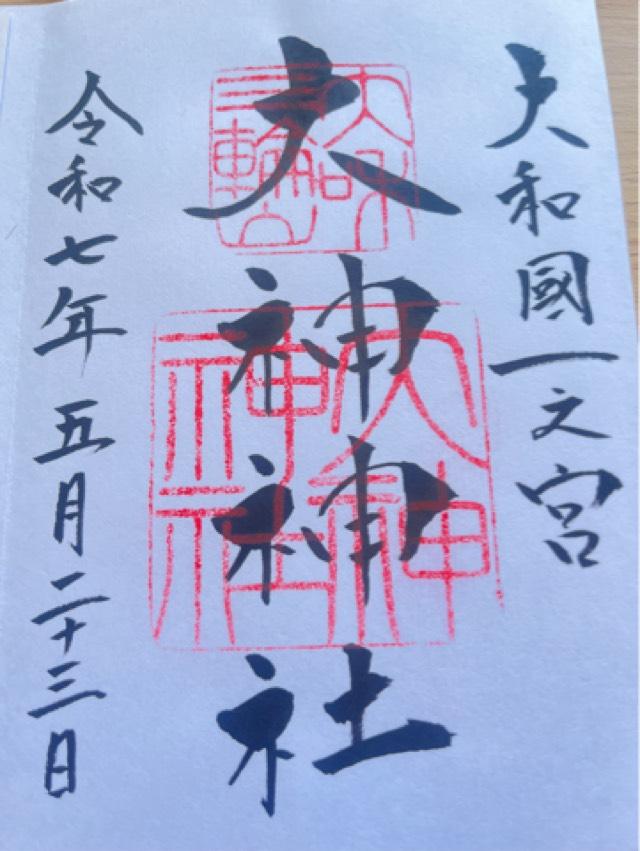 大和國一之宮
大神神社
令和七年五月二十三日
大和
三輪山
大神
神社